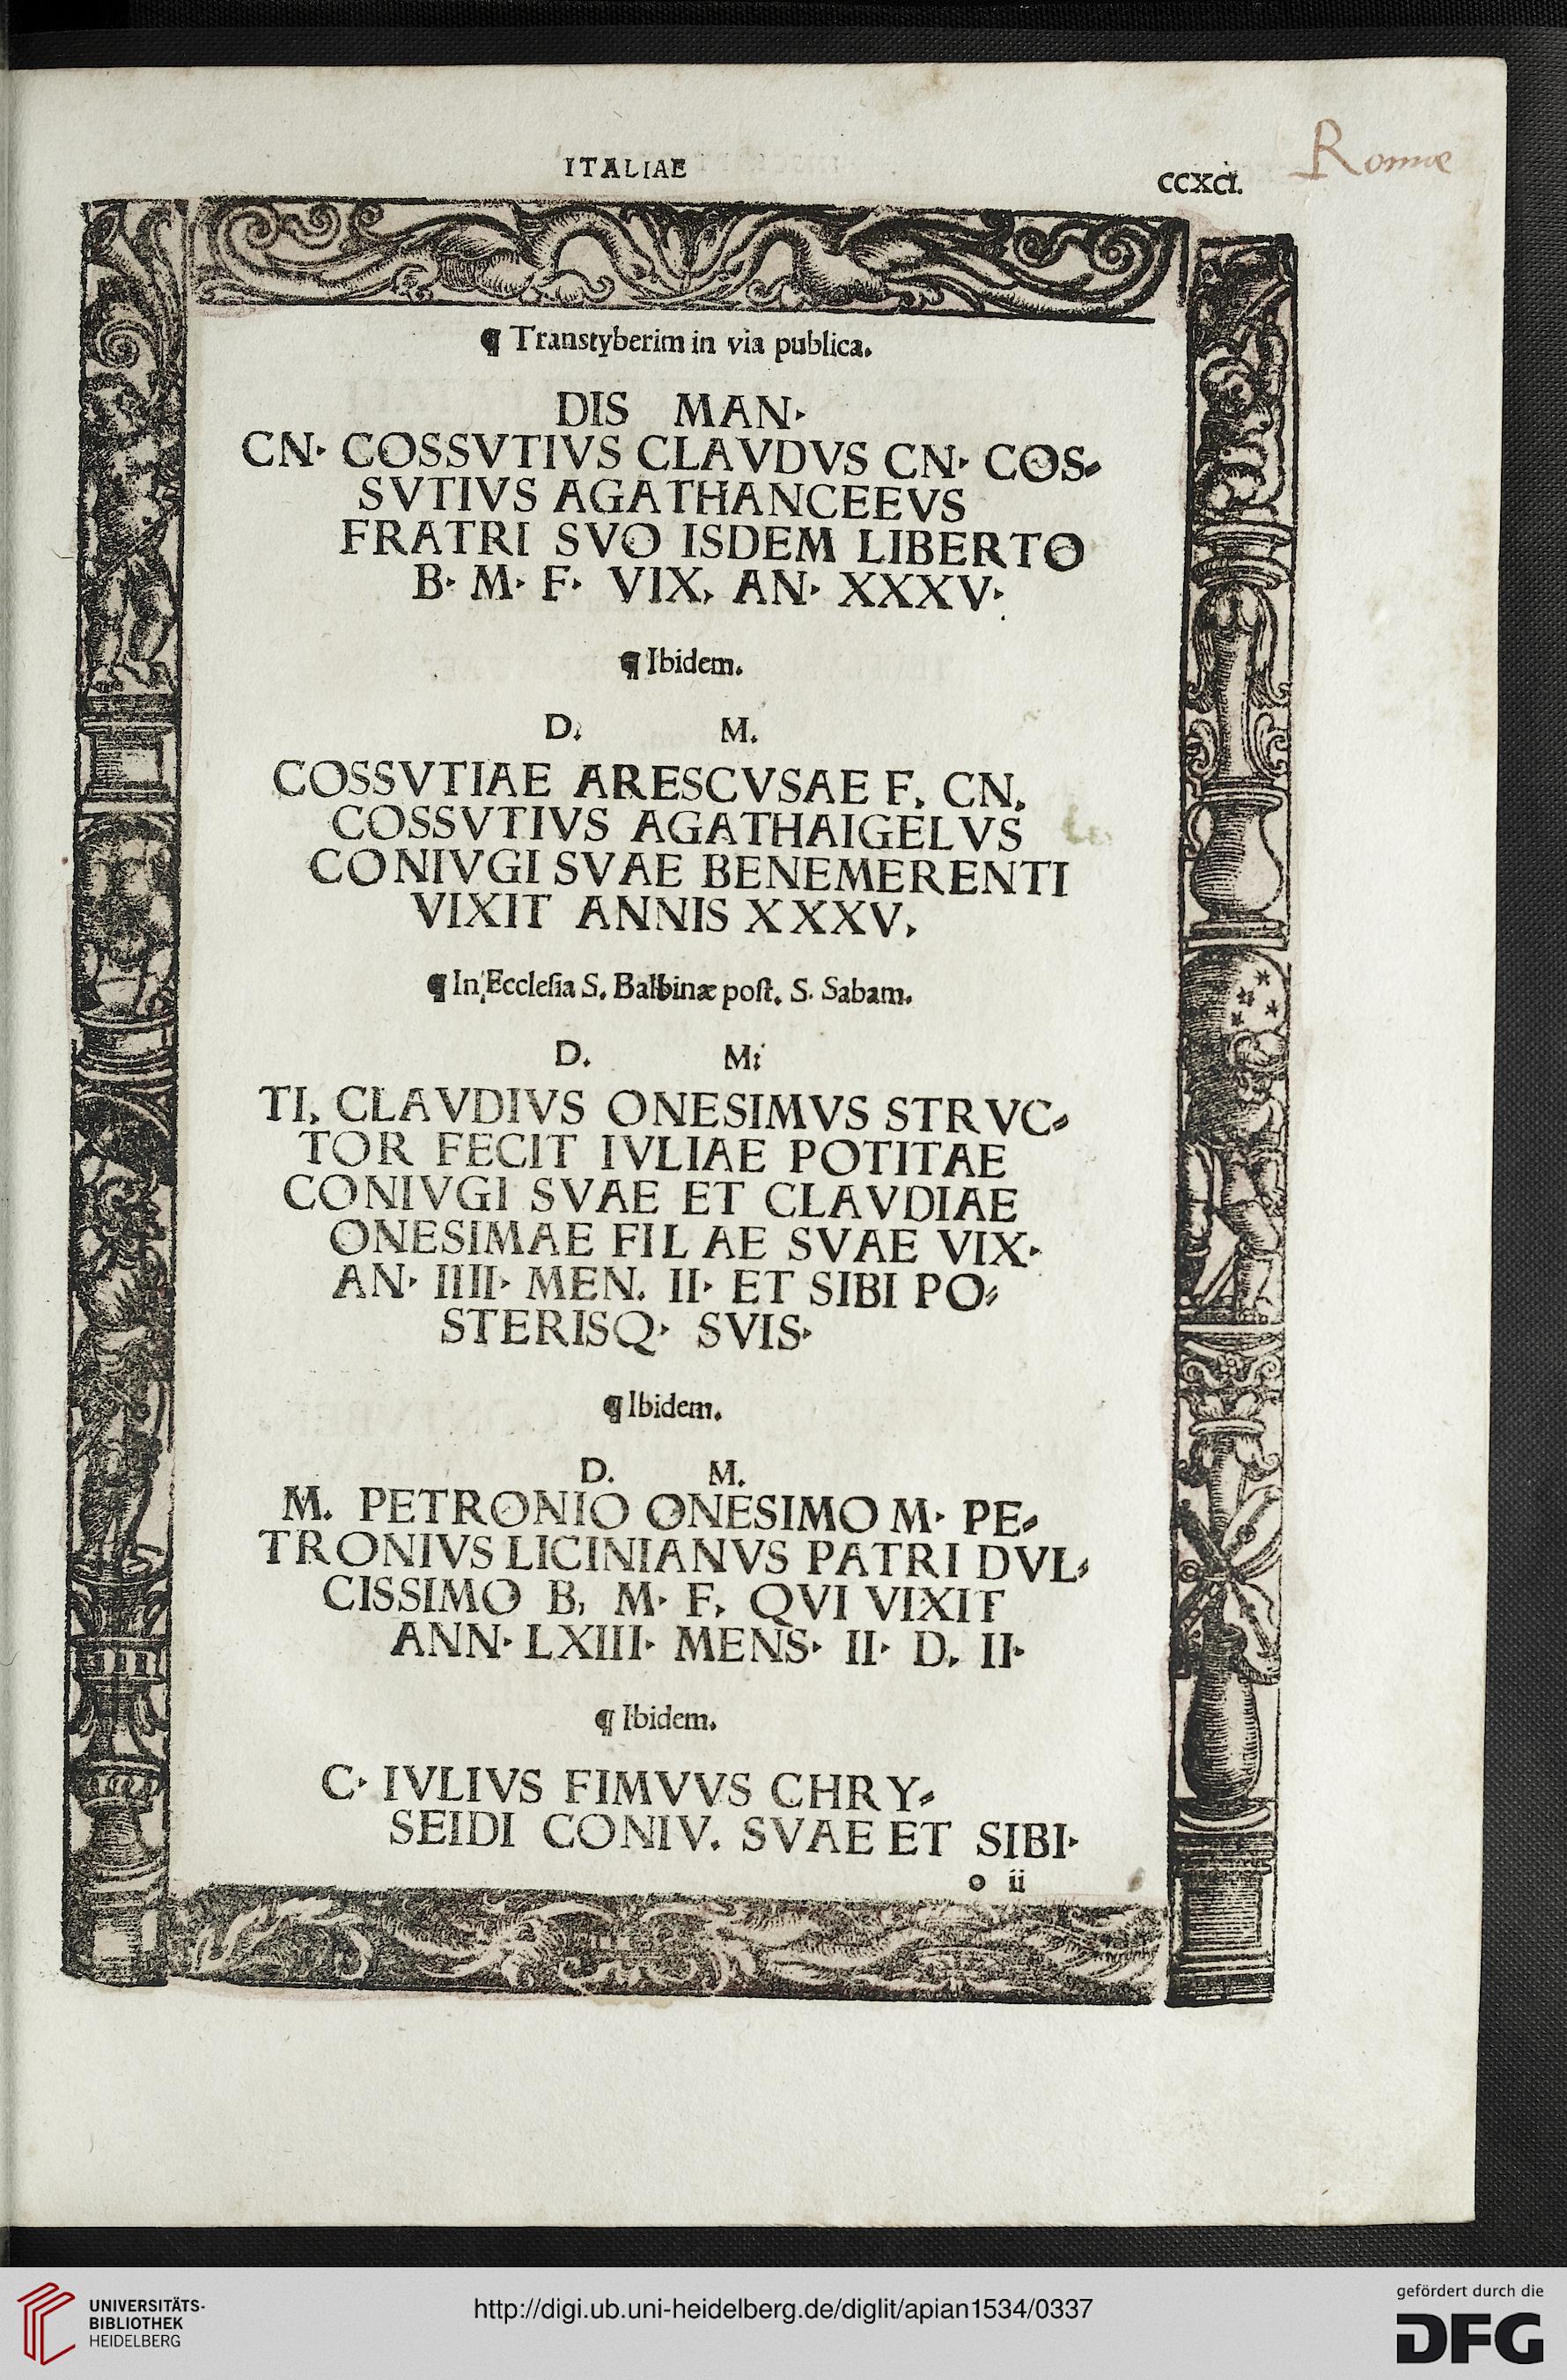 ITALIAE
CCXCI.
Romæ
¶ Transtyberim in via publica.
DIS MAN·
CN· COSSVTIVS CLAVDVS CN· COS⸗
SVTIVS AGATHANCEEVS
FRATRI SVO ISDEM LIBERTO
B· M· F· VIX, AN· XXXV·
¶ Ibidem.
D. M.
COSSVTIAE ARESCVSAE F, CN,
COSSVTIVS AGATHAIGELVS
CONIVGI SVAE BENEMERENTI
VIXIT ANNIS XXXV,
¶ In Ecclesia S. Balbinæ post. S. Sabam.
D. M:
TI, CLAVDIVS ONESIMVS STRVC⸗
TOR FECIT IVLIAE POTITAE
CONIVGI SVAE ET CLAVDIAE
ONESIMAE FIL AE SVAE VIX·
AN· IIII· MEN. II· ET SIBI PO⸗
STERISQ· SVIS·
¶ Ibidem.
D. M.
M. PETRONIO ONESIMO M· PE⸗
TRONIVS LICINIANVS PATRI DVL⸗
CISSIMO B, M· F, QVI VIXIT
ANN· LXIII· MENS· II· D, II·
¶ Ibidem.
C· IVLIVS FIMVVS CHRY⸗
SEIDI CONIV. SVAE ET SIBI·
o ii
UNIVERSITÄTS-
BIBLIOTHEK
HEIDELBERG
http://digi.ub.uni-heidelberg.de/diglit/apian1534/0337
gefördert durch die
DFG